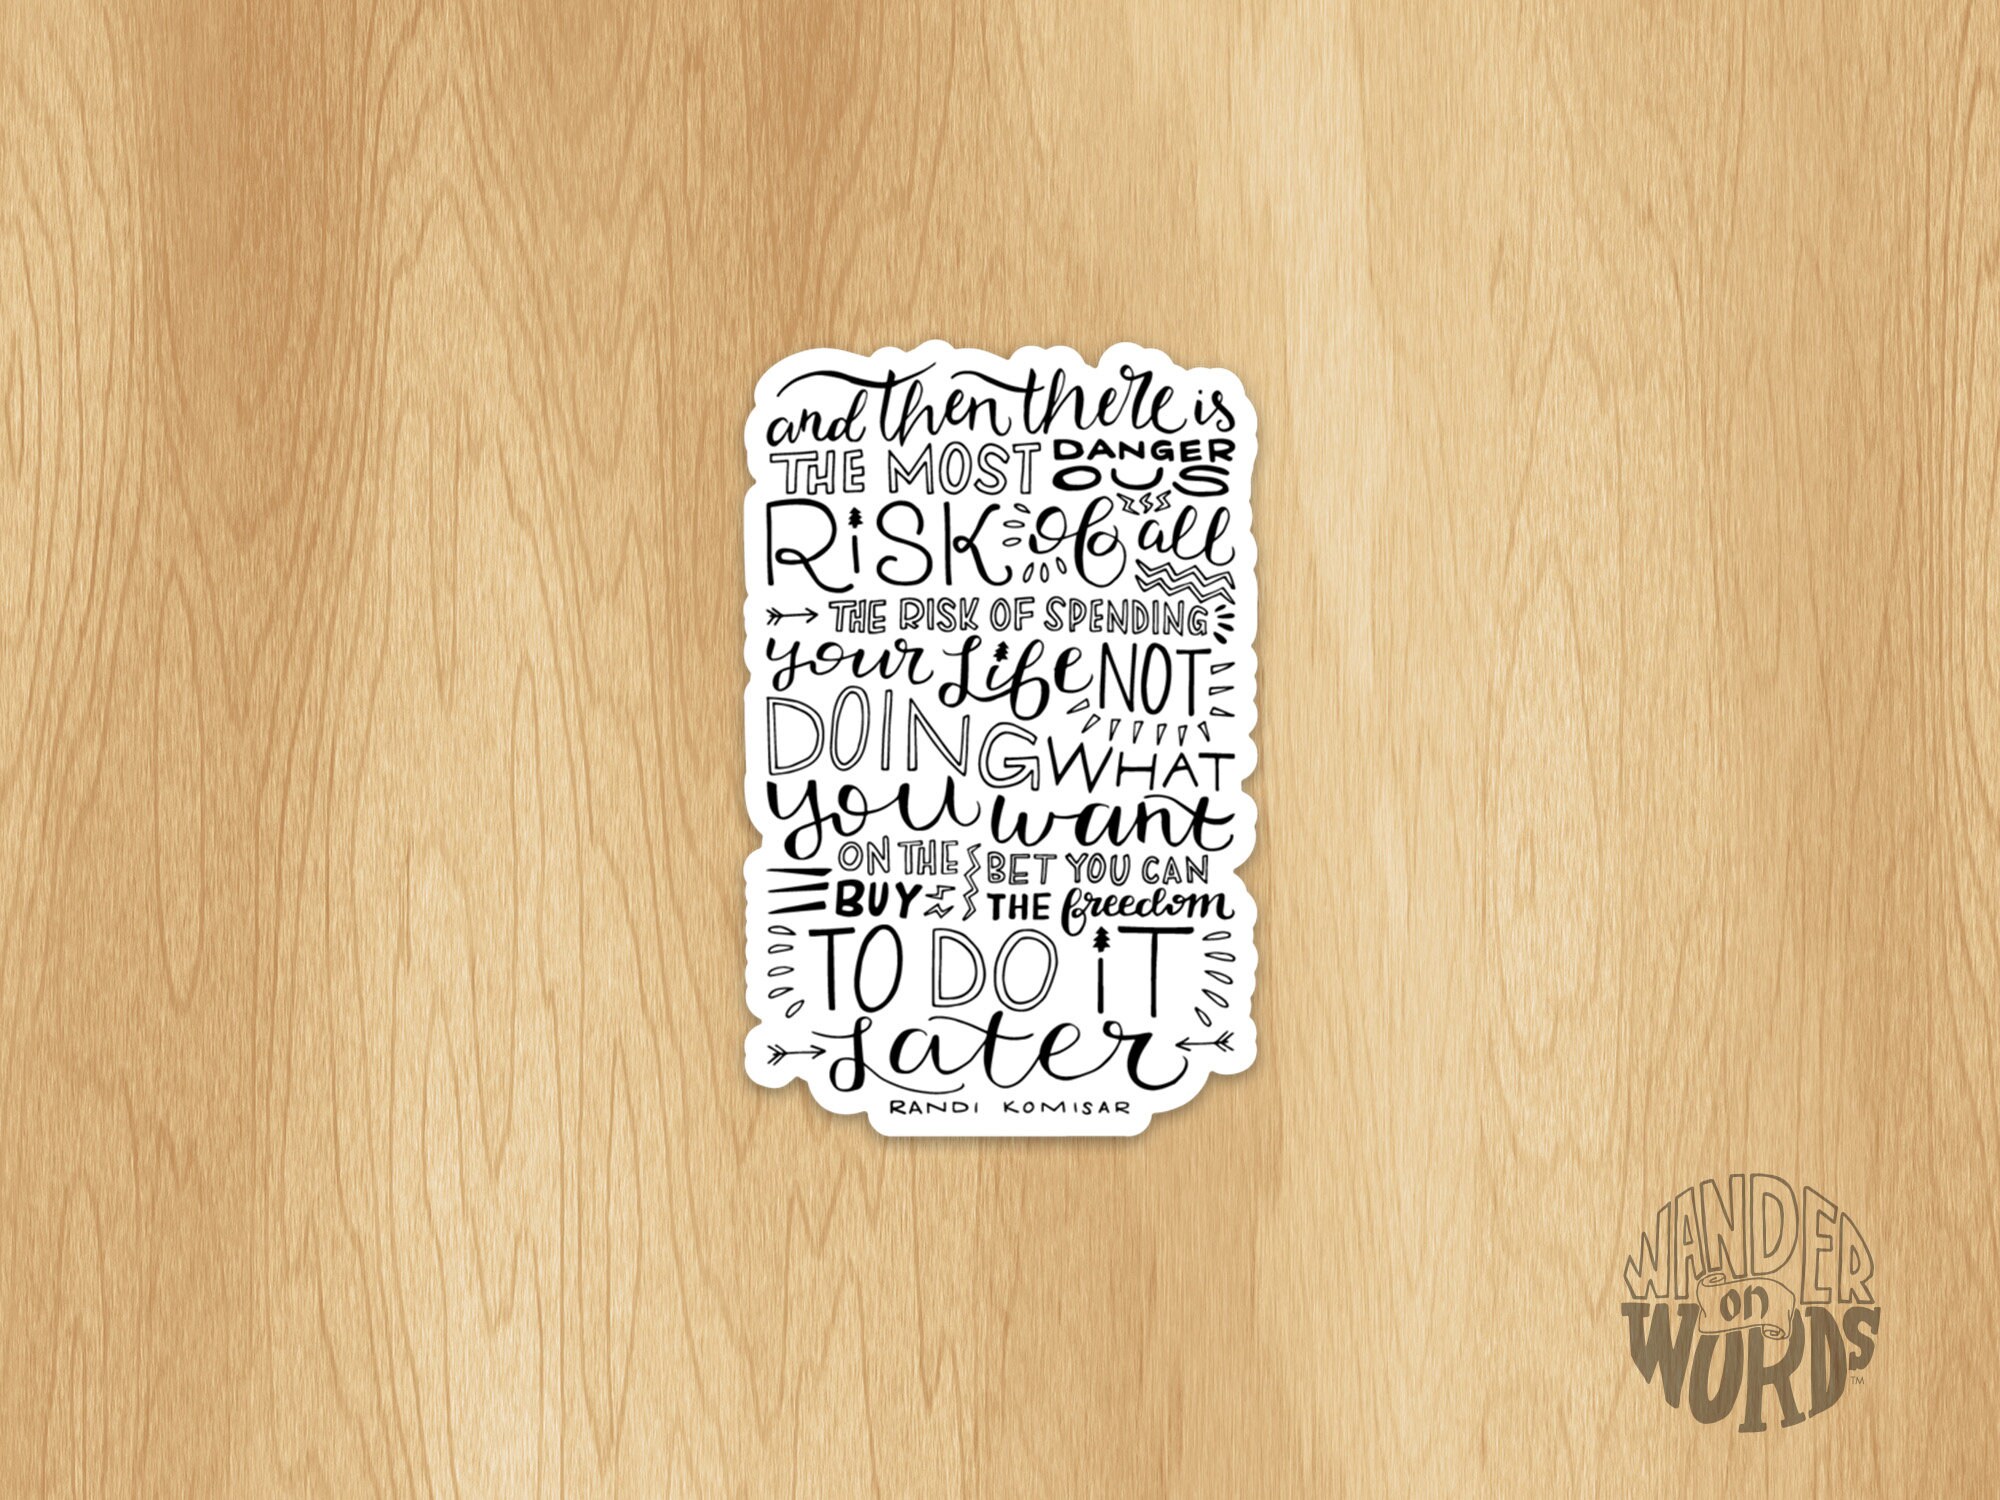 and then there is
THE MOST DANGER
OUS
RiSK of all
THE RISK OF SPENDING
your Life NOT
DOING WHAT
you want
ON THE BET YOU CAN
BUY THE freedom
TO DO iT
Later
RANDI KOMISAR
WANDER
on
WORDS
TM